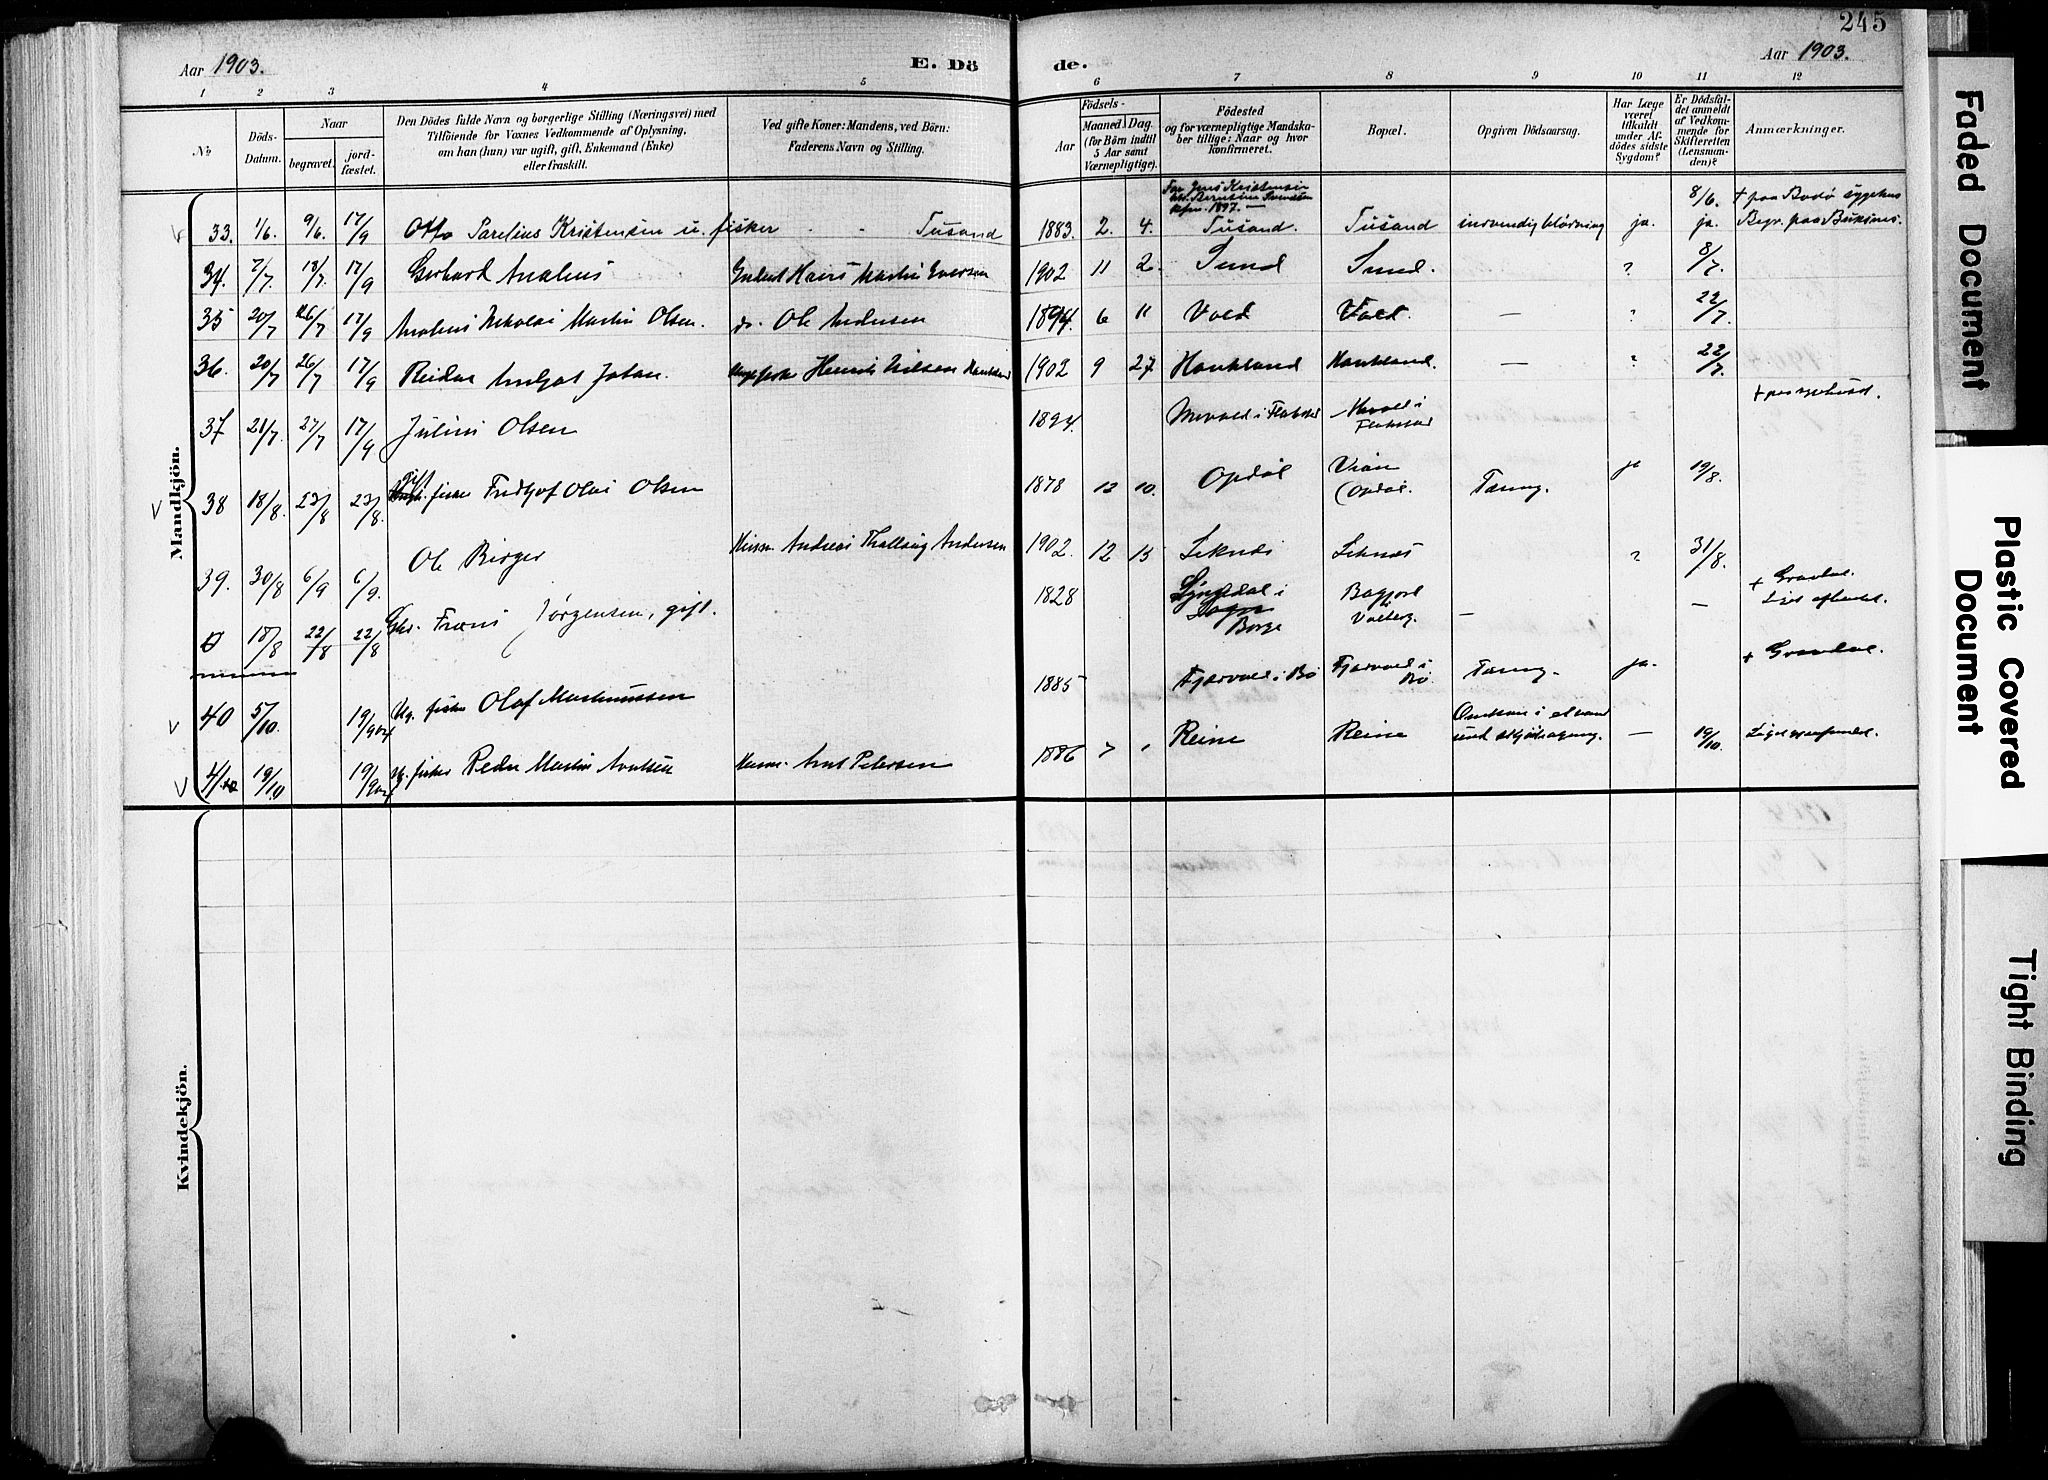 245
Aar 1903.
E. Dö
de.
Aar 1903.
1 2 3 4 5 6 7 8 9 10 11 12
No
Döds-
Datum.
Naar
begravet.
jord-
fæstet.
Den Dödes fulde Navn og borgerlige Stilling (Næringsvei) med
Tilföiende for Voxnes Vedkommende af Oplysning,
om han (hun) var ugift, gift, Enkemand (Enke)
eller fraskilt.
Ved gifte Koner: Mandens, ved Börn:
Faderens Navn og Stilling.
Födsels-
Aar
Maaned
Dag
(for Börn indtil
5 Aar samt
Værnepligtige).
Födested
og for værnepligtige Mandska-
ber tillige: Naar og hvor
konfirmeret.
Bopæl.
Opgiven Dödsaarsag.
Har Læge
været
tilkaldt
under Af-
dödes sidste
Sygdom?
Er Dödsfal-
det anmeldt
af Vedkom-
mende for
Skifteretten
(Lensman-
den)?
Anmærkninger.
Mandkjön.
33. 1/6. 9/6. 17/9 Otto Parelius Kristensen u. fisker Tusand 1883. 2. 4. Tusand. Tusand indvendig blødning ja. 8/6. ja. + paa Bodø sygehus
Begr. paa Buksnes.
34. 2/7. 13/7. 17/9 Gerhard Analius Hans Martin Eversen 1902 11 2. Sund Sund. ? 8/7.
35 20/7 26/7 17/9 Nikolai Martin Olsen. do. Ole Andersen 1894. 6 11 Vold Vold. — ? 22/7.
36. 20/7 26/7 17/9 Reidar Johan. Henrik Nilsen 1902 9 27 Haukland Haukland. — ? 22/7.
37 21/7. 27/7 17/9 Julius Olsen 1894.
38 18/8. 23/8 23/8. gift fisker Fridtjof Olai Olsen 1878 12 10. Opdøl Opdøl. Tæring. ja 19/8.
39. 30/8 6/9 6/9. Ole Birger Andreas Andersen 1902. 12 15 Leknes Leknes ? 31/8.
18/8 22/8 22/8 Frans Jørgensen, gift. 1828 Borge Valberg. — — + Gravdal.
40 5/10. 19/904 Ug. fisker Olaf Martinussen 1885 Fjærvold i Bø Fjærvold i Bø Tæring. ja. + Gravdal.
41 19/10 19/904 Ug. fisker Peder Martin Arntsen Arnt Petersen 1886 7 1 Reine Reine — 19/10.
Kvindekjön.
Faded Document
Plastic Covered
Document
Tight Binding